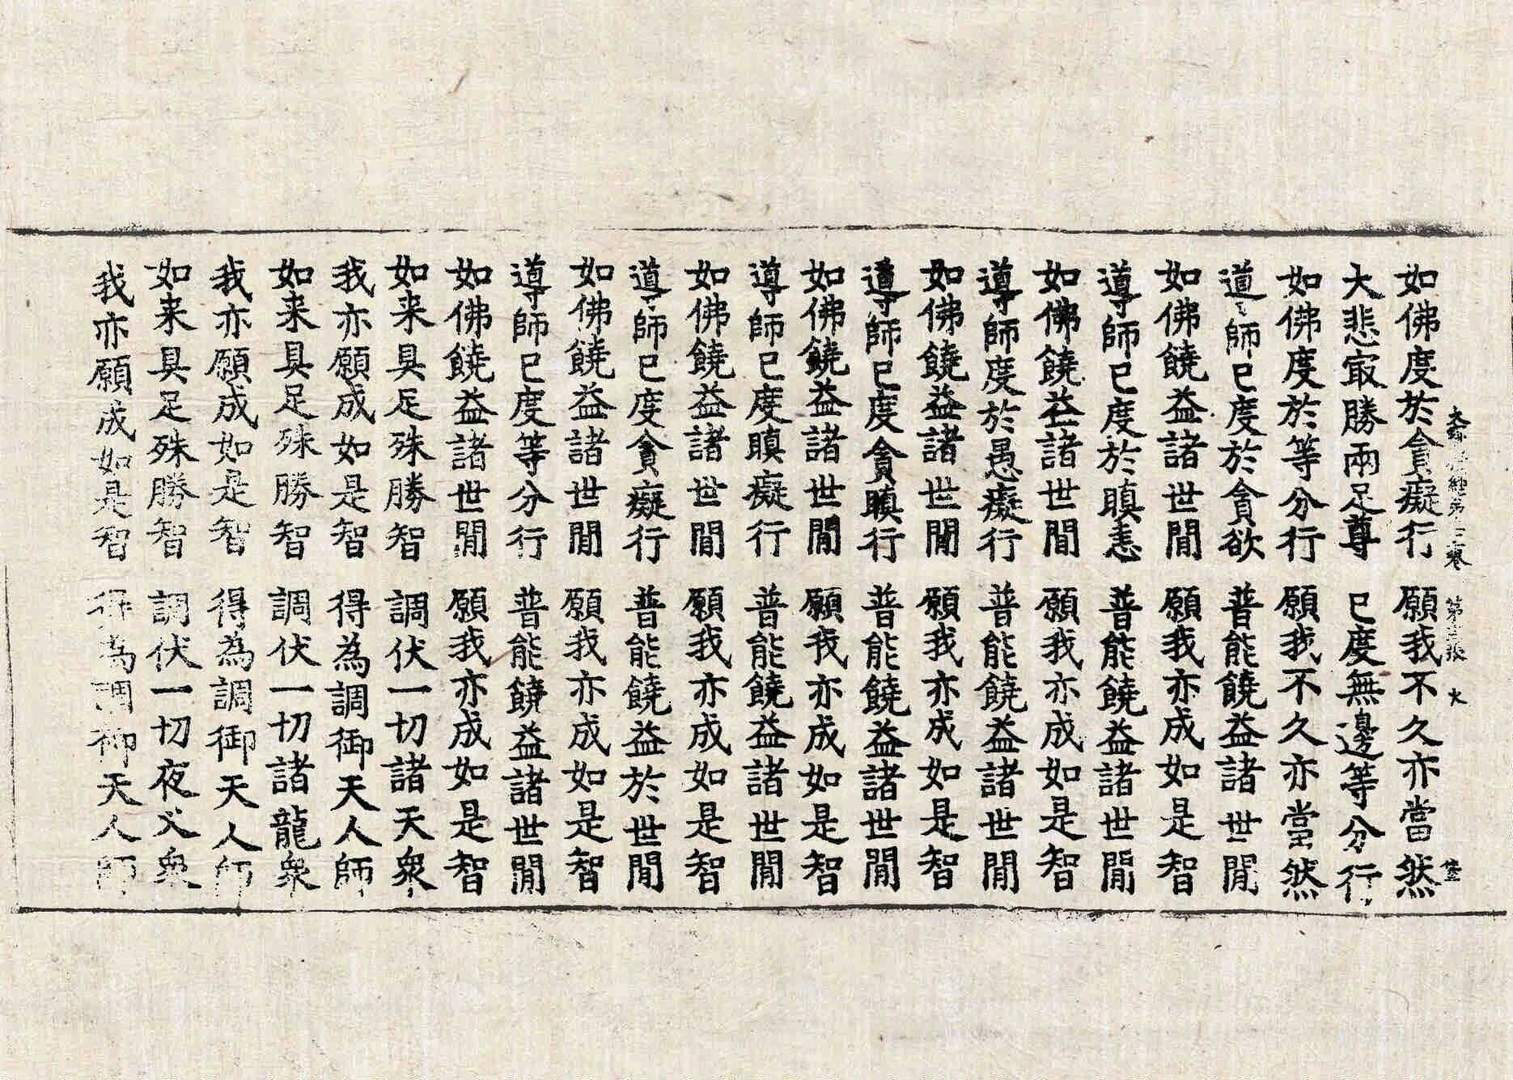 大 經第 卷 第 張 火
如佛度於貪癡行 願我不久亦當然
大悲㝡勝兩足尊 已度無邊等分行
如佛度於等分行 願我不久亦當然
導師已度於貪欲 普能饒益諸世間
如佛饒益諸世間 願我亦成如是智
導師已度於瞋恚 普能饒益諸世間
如佛饒益諸世間 願我亦成如是智
導師度於愚癡行 普能饒益諸世間
如佛饒益諸世間 願我亦成如是智
導師已度貪瞋行 普能饒益諸世間
如佛饒益諸世間 願我亦成如是智
導師已度瞋癡行 普能饒益諸世間
如佛饒益諸世間 願我亦成如是智
導師已度貪癡行 普能饒益於世間
如佛饒益諸世間 願我亦成如是智
導師已度等分行 普能饒益諸世間
如佛饒益諸世間 願我亦成如是智
如来具足殊勝智 調伏一切諸天衆
我亦願成如是智 得為調御天人師
如来具足殊勝智 調伏一切諸龍衆
我亦願成如是智 得為調御天人師
如来具足殊勝智 調伏一切夜叉衆
我亦願成如是智 得為調御天人師